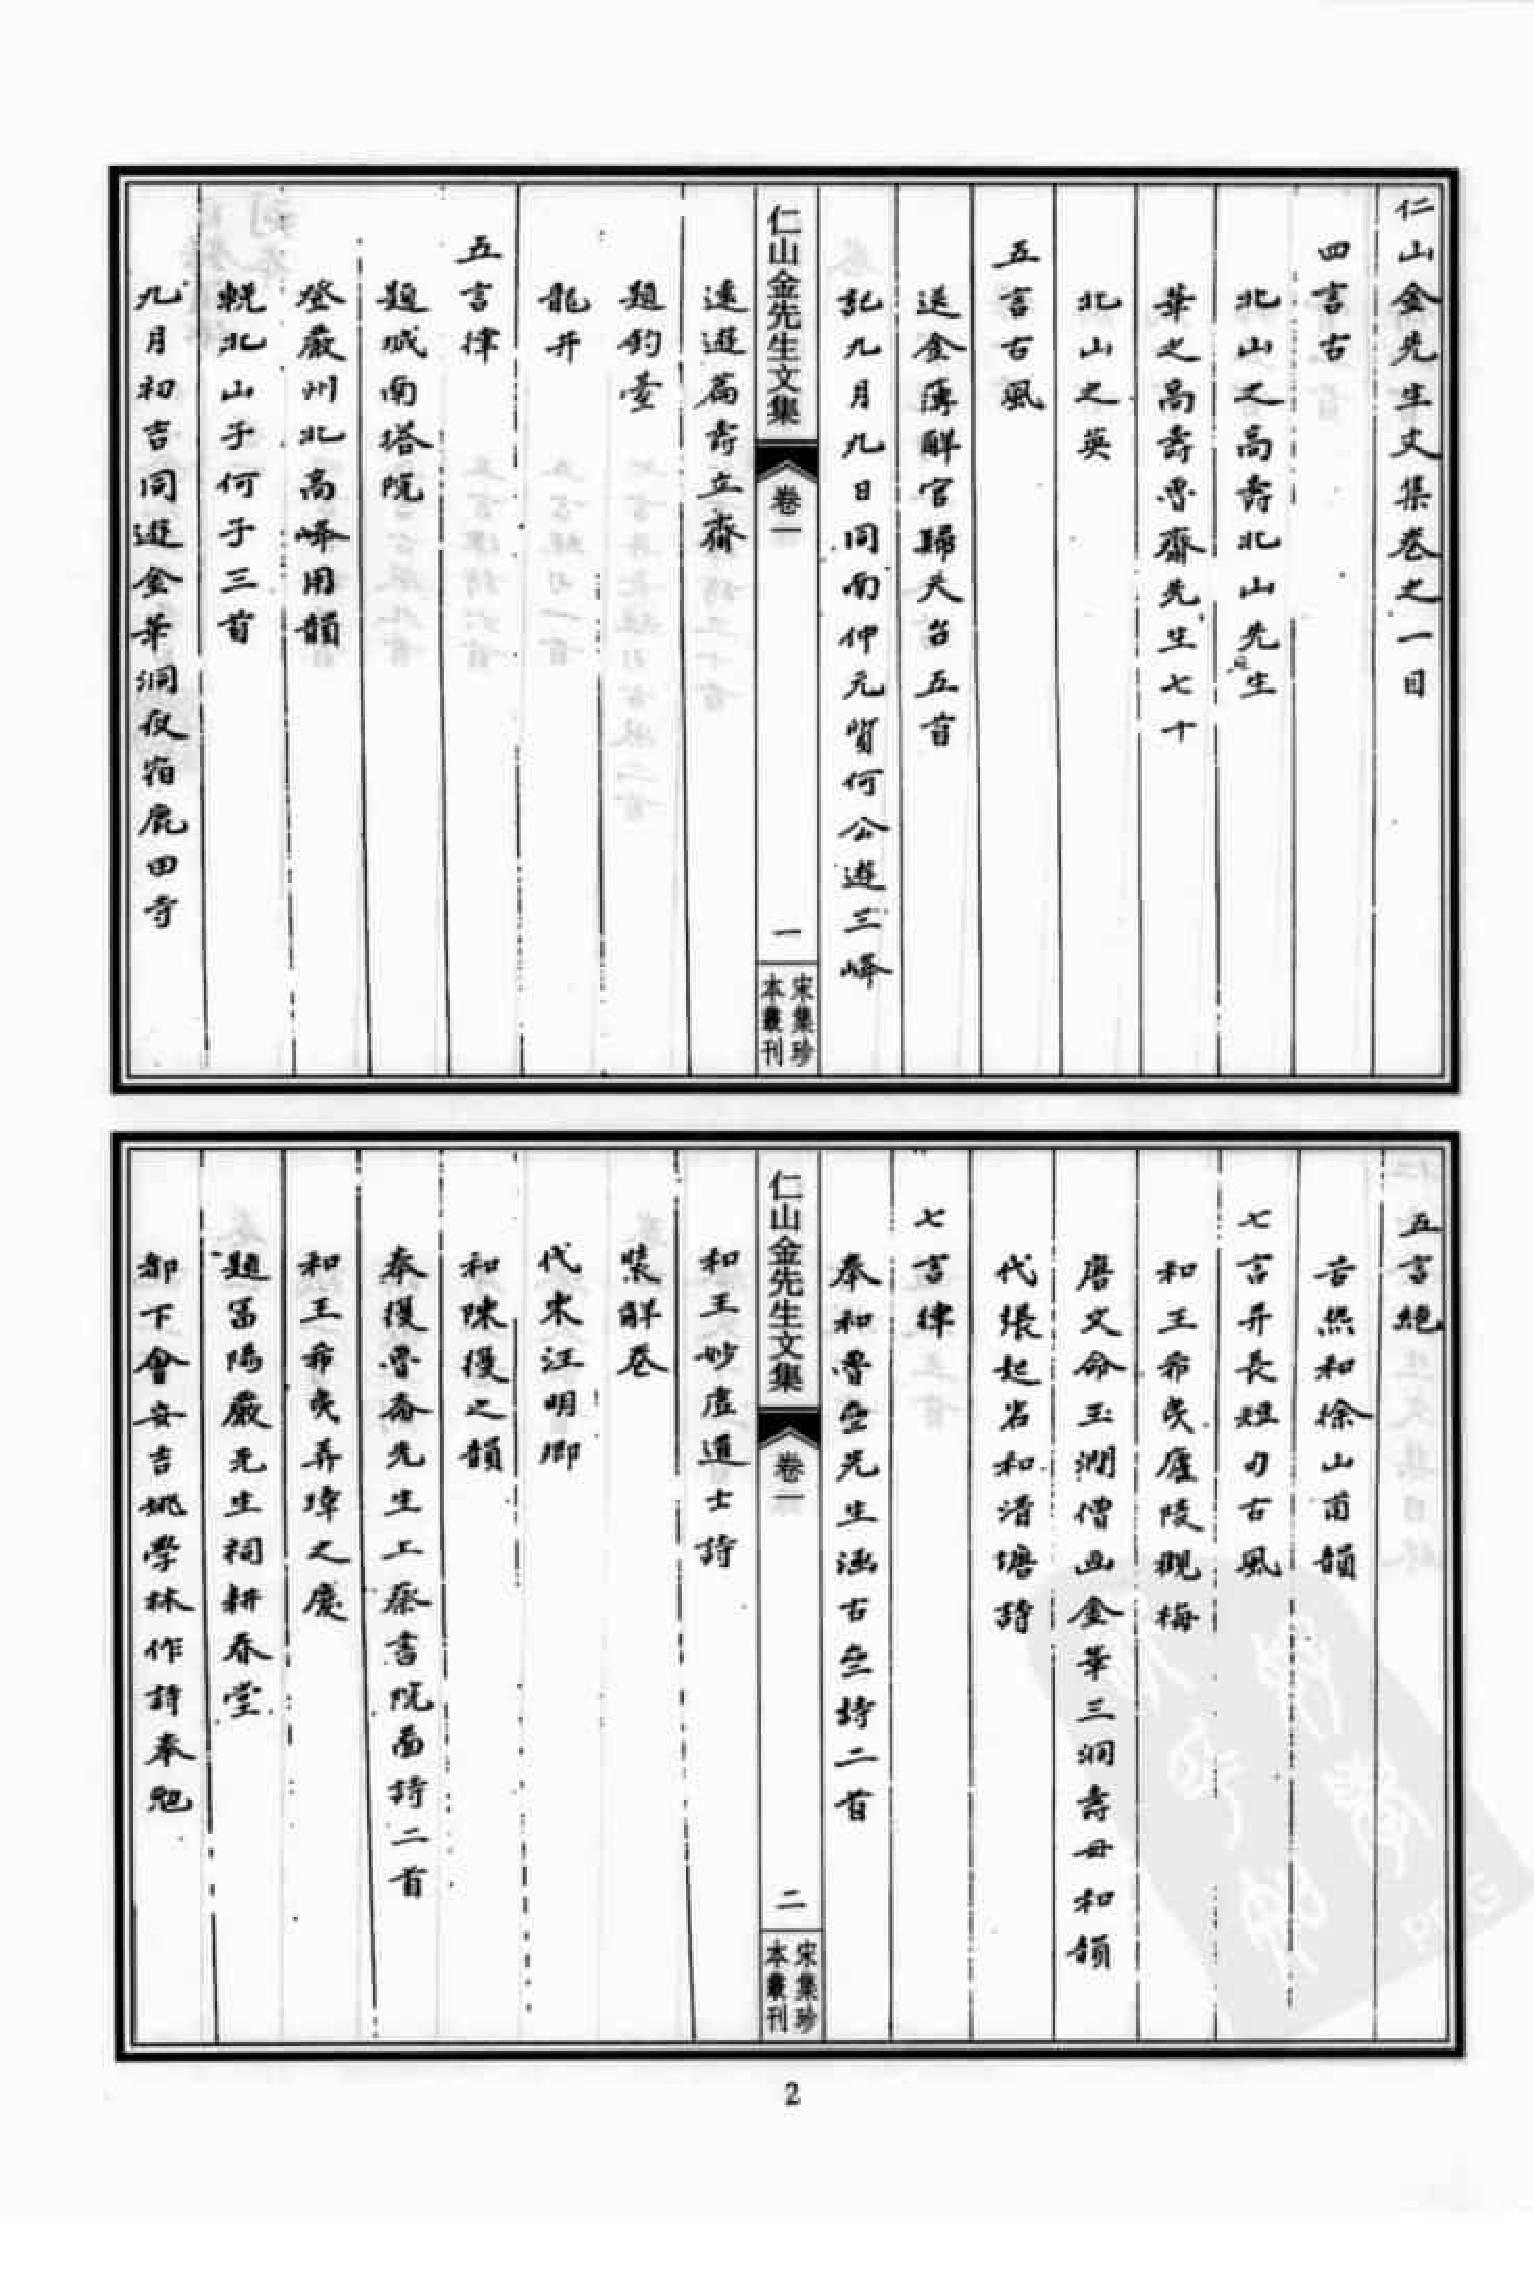 仁山金先生文集卷之一目
四言古
北山之高壽北山先生
華之高壽魯齋先生七十
北山之英
五言古風
送金簿解官歸天台五首
九月九日同南仲元質何公遊三峰
仁山金先生文集
卷一
一
宋集珍
本叢刊
遠遊篇壽立齋
題釣臺
龍井
五言律
題城南塔院
登嚴州北高峰用韻
輓北山子何子三首
九月初吉同遊金華洞夜宿鹿田寺
五言絕
苦熱和徐山甫韻
七言并長短句古風
和王希夷廬陵觀梅
唐文命玉澗僧画金華三洞壽母和韻
代張起岩和清塘詩
七言律
奉和魯齋先生涵古齋詩二首
仁山金先生文集
卷一
二
宋集珍
本叢刊
和王妙虛道士詩
裝解卷
代宋汪明卿
和陳復之韻
奉復魯齋先生上蔡書院面詩二首
和王希夷弄璋之慶
題冨陽嚴先生祠耕春堂
都下會安吉姚學林作詩奉
2